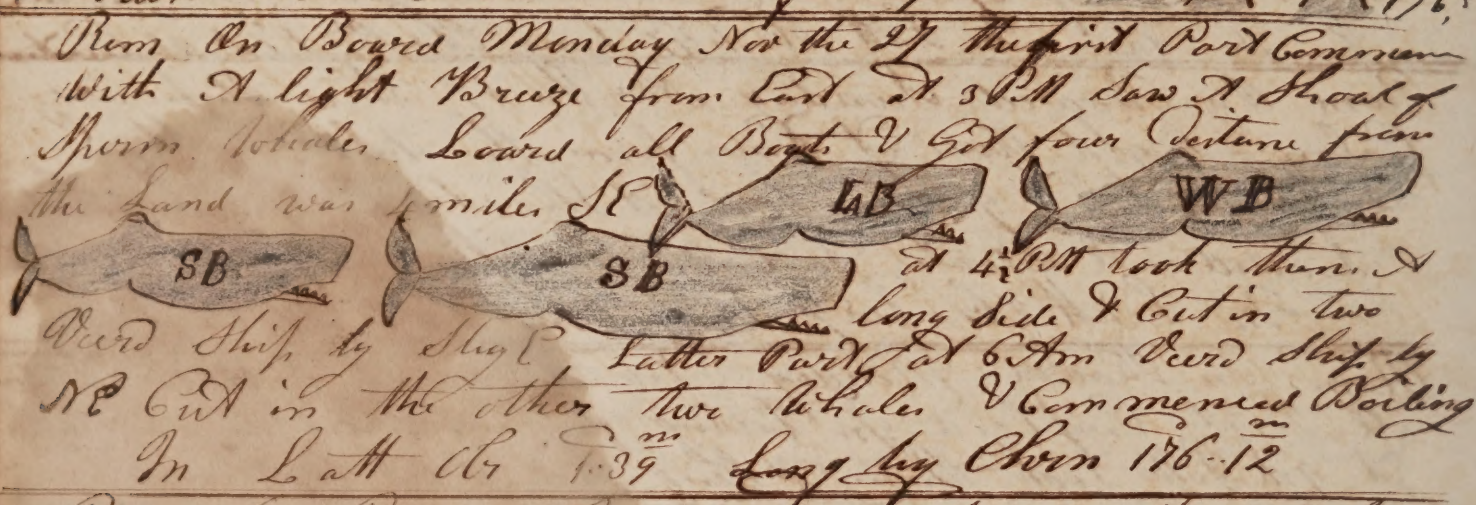 Rem On Board Monday Nov the 27 the first Part Commen
With A light Breeze from East at 3 PM Saw A Shoal of
Sperm Whales Loward all Boats & Got four distane from
the Land was 4 miles SE
LB WB
SB SB
at 4½ PM took them A
long Side & Cut in two
Veerd Ship by
Latter Part at 6 Am Veerd Ship by
NE Cut in the other two Whales & Commenced Boiling
In Latt Ob 1..39 m Long by Chron 176..12 m